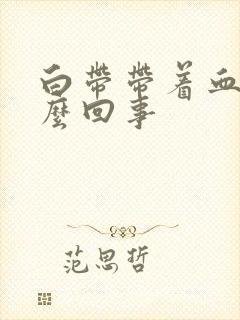 白帶帶着血
麼回事
范思哲